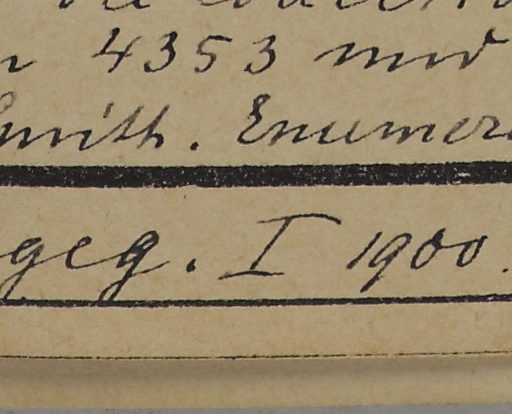 4353 mod
Smith. Enumer
geg. I 1900.